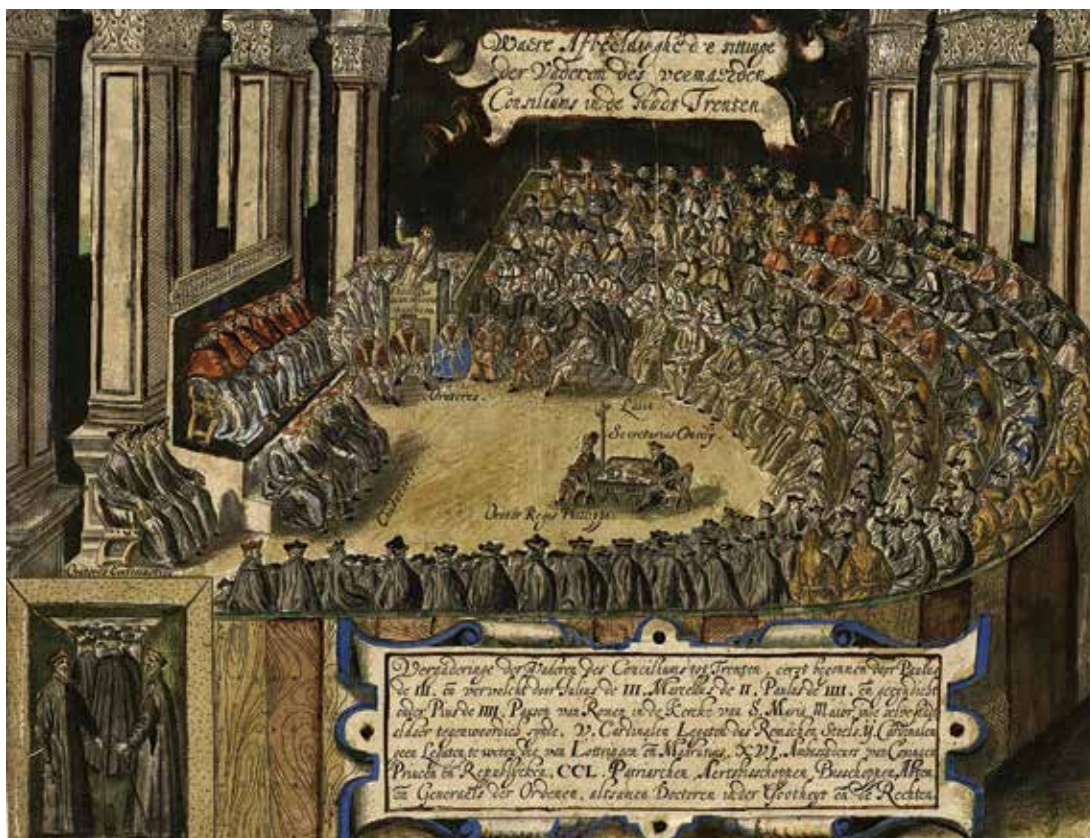 Waere Afbeeldinghe d'e sittinge
der Vaderen des vermaerden
Consiliums in de Stadt Trenten.
Oratores.
Secretarius Concilij
Orator Regis Philippi.
Vergaderinge der Vaderen des Conciliums tot Trenten, eerst begonnen door Paulus
de III. en vervolcht door Julius de III. Marcellus de II. Paulus de IIII. en geeyndicht
onder Pius de IIII. Pausen van Romen in de Kercke van S. Maria Maior
aldaer tegenwoordich synde. V. Cardinalen Legaten des Roomschen Stoels. ij. Cardinalen
geen Legaten te weten die van Lottringen en Madrutius. XVJ. Ambassadeurs van Coningen
Princen en Republijcken. CCL. Patriarchen, Aertsbisschoppen, Bisschoppen, Abten,
en Generaels der Ordenen, altsamen Doctoren in der Godtheyt en de Rechten.